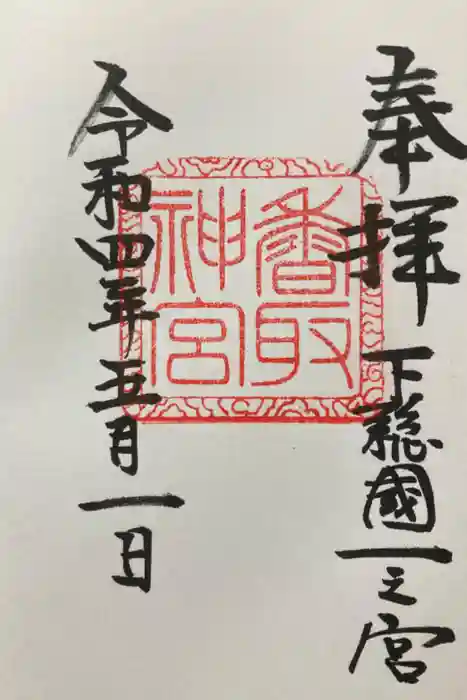 奉拝 下総國一之宮
香取
神宮
令和四年五月一日